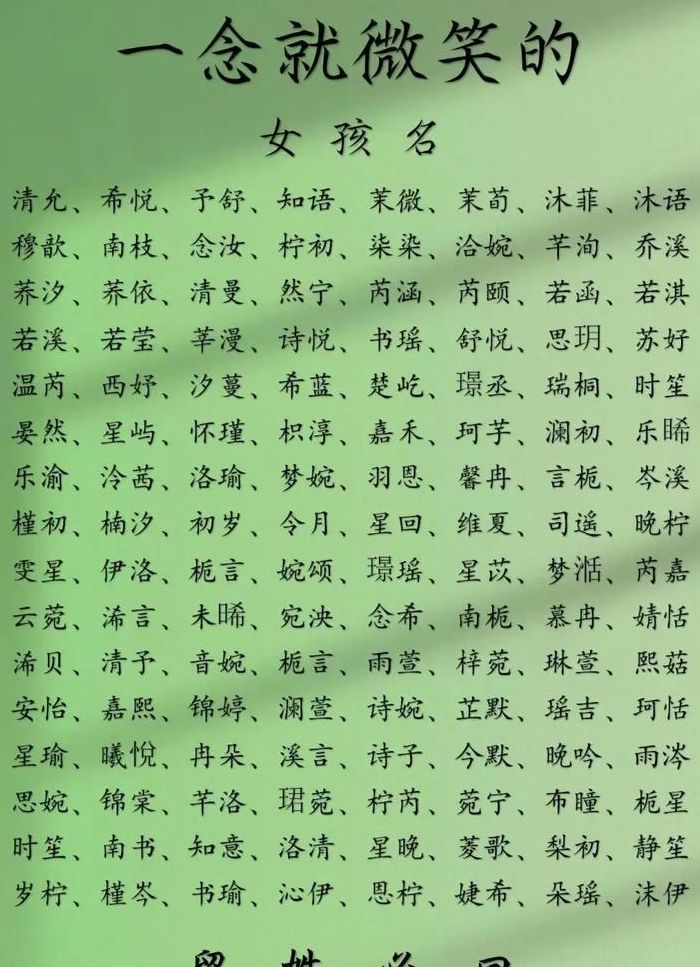 一念就微笑的
女孩名
清允、希悦、予舒、知语、茉微、茉荀、沐菲、沐语
穆歆、南枝、念汝、柠初、柒染、洽婉、芊洵、乔溪
荞汐、荞依、清曼、然宁、芮涵、芮颐、若函、若淇
若溪、若莹、莘漫、诗悦、书瑶、舒悦、思玥、苏好
温芮、西妤、汐蔓、希蓝、楚屹、璟丞、瑞桐、时笙
晏然、星屿、怀瑾、枳淳、嘉禾、珂芋、澜初、乐晞
乐渝、泠茜、洛瑜、梦婉、羽恩、馨冉、言栀、岑溪
槿初、楠汐、初岁、令月、星回、维夏、司遥、晚柠
雯星、伊洛、栀言、婉颂、璟瑶、星苡、梦湉、芮嘉
云菀、浠言、未晞、宛泱、念希、南栀、慕冉、婧恬
浠贝、清予、音婉、栀言、雨萱、梓菀、琳萱、熙菇
安怡、嘉熙、锦婷、澜萱、诗婉、芷默、瑶吉、珂恬
星瑜、曦悅、冉朵、溪言、诗子、今默、晚吟、雨涔
思婉、锦棠、芊洛、珺菀、柠芮、菀宁、布瞳、栀星
时笙、南书、知意、洛清、星晚、菱歌、梨初、静笙
岁柠、槿岑、书瑜、沁伊、恩柠、婕希、朵瑶、沫伊
留姓必回